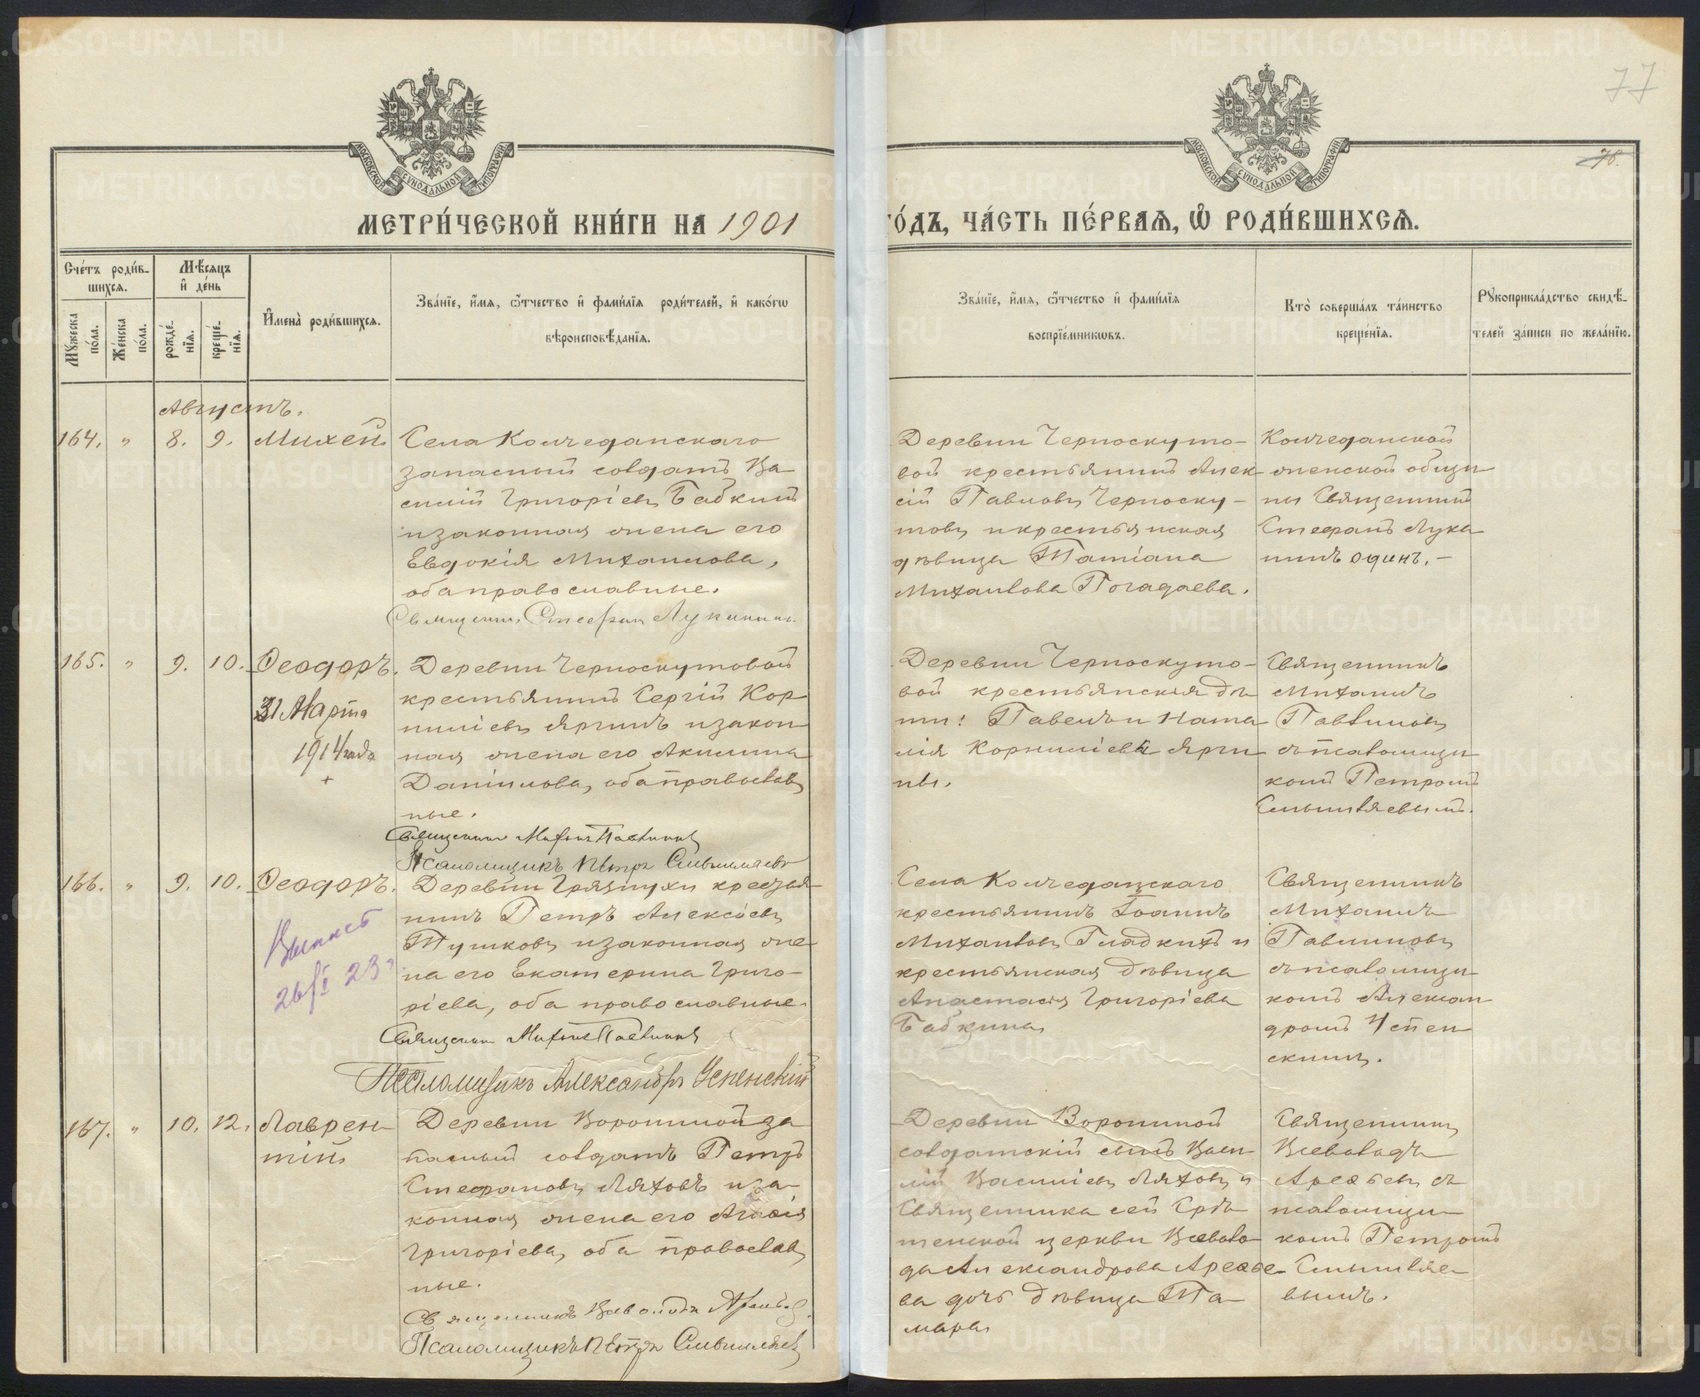 METRIKI.GASO-URAL.RU
77
78.
МОСКОВСКОЙ СѴНОДАЛЬНОЙ ТИПОГРАФІИ
МОСКОВСКОЙ СѴНОДАЛЬНОЙ ТИПОГРАФІИ
МЕТРИ́ЧЕСКОЙ КНИ́ГИ НА 1901
ГО́ДЪ, ЧА́СТЬ ПЕ́РВАѦ, Ѽ РОДИ́ВШИХСѦ.
Сче́тъ роди́в-
шихсѧ.
Мѣ́сѧцъ
и҆ де́нь
Мꙋ́жеска
по́ла.
Же́нска
по́ла.
рожде́-
нїѧ.
креще́-
нїѧ.
И҆мена̀ роди́вшихсѧ.
Зва́нїе, и҆́мѧ, ѻ҆́тчество и҆ фами́лїѧ роди́телей, и҆ како́гѡ
вѣроисповѣ́данїѧ.
Зва́нїе, и҆́мѧ, ѻ҆́тчество и҆ фами́лїѧ
воспрїе́мникѡвъ.
Кто̀ соверша́лъ та́инство
креще́нїѧ.
Рꙋкоприкла́дство свидѣ́-
телей за́писи по жела́нїю.
Августъ.
164. " 8. 9. Михей
Села Колчеданскаго
запасный солдатъ Ва
силій Григоріевъ Бабкинъ
и законная жена его
Евдокія Михаилова,
оба православные.
Священникъ Стефанъ Лукининъ.
Деревни Черноскуто-
вой крестьянинъ Алек
сій Павловъ Черноску-
товъ и крестьянская
дѣвица Татіана
Михаилова Погадаева.
Колчеданской
женской общи
ны Священникъ
Стефанъ Луки
нинъ одинъ.-
165. " 9. 10. Ѳеодоръ.
31 Марта
1914 года
+
Деревни Черноскутовой
крестьянинъ Сергій Кор
ниліевъ Яринъ и закон
ная жена его Акилина
Даніилова, оба православ
ные.
Священникъ Михаилъ Павлиновъ
Псаломщикъ Петръ Смышляевъ
Деревни Черноскуто-
вой крестьянскія дѣ
ти: Павелъ и Ната
лія Корниліевы Яри
ны.
Священникъ
Михаилъ
Павлиновъ
съ псаломщи
комъ Петромъ
Смышляевымъ.
166. " 9. 10. Ѳеодоръ.
Выпись
26/I 23 г
Деревни Грязнухи крестья
нинъ Петръ Алексѣевъ
Тушковъ и законная же
на его Екатерина Григо-
ріева, оба православные.
Священникъ Михаилъ Павлиновъ
Псаломщикъ Александръ Успенскій
Села Колчеданскаго
крестьянинъ Іоаннъ
Михаиловъ Гладкихъ и
крестьянская дѣвица
Анастасія Григоріева
Бабкина
Священникъ
Михаилъ
Павлиновъ
съ псаломщи
комъ Алексан
дромъ Успен
скимъ.
167. " 10. 12. Лаврен-
тій
Деревни Ворониной за
пасный солдатъ Петръ
Стефановъ Ляховъ и за-
конная жена его
Григоріева, оба православ
ные.
Священникъ Всеволодъ Арефьевъ.
Псаломщикъ Петръ Смышляевъ
Деревни Ворониной
солдатскій сынъ Васи
лій Василіевъ Ляховъ и
Священника сей Срѣ
тенской церкви Всеволо
да Александрова Арефье-
ва дочь дѣвица Та-
мара
Священникъ
Всеволодъ
Арефьевъ съ
псаломщи-
комъ Петромъ
Смышляе-
вымъ.